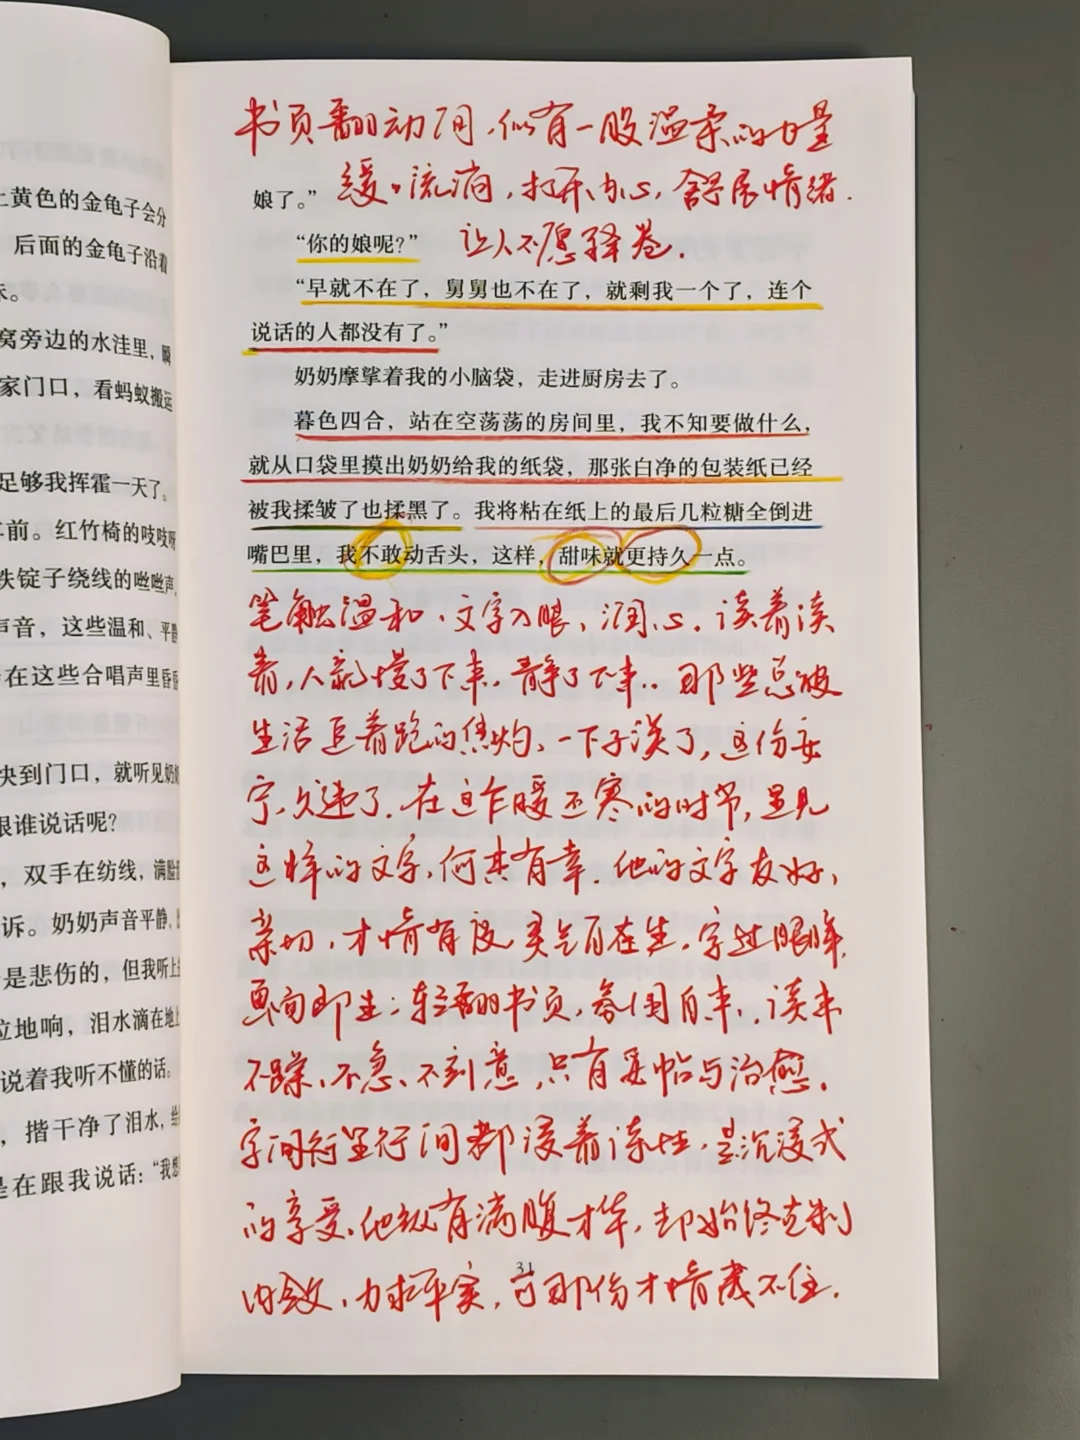 上黄色的金龟子会分
后面的金龟子沿着
窝旁边的水洼里，瞬
家门口，看蚂蚁搬运
足够我挥霍一天了。
年前。红竹椅的吱吱呀
铁锭子绕线的咝咝声、
声音，这些温和、平静
在这些合唱声里昏昏
央到门口，就听见奶奶
跟谁说话呢？
，双手在纺线，满脸
诉。奶奶声音平静，
是悲伤的，但我听上
立地响，泪水滴在地上
说着我听不懂的话。
，揩干净了泪水，给
是在跟我说话：“我想
书页翻动间，似有一股温柔的力量
缓缓流淌，打开内心，舒展情绪.
娘了。”
让人不愿释卷.
“你的娘呢？”
“早就不在了，舅舅也不在了，就剩我一个了，连个
说话的人都没有了。”
奶奶摩挲着我的小脑袋，走进厨房去了。
暮色四合，站在空荡荡的房间里，我不知要做什么，
就从口袋里摸出奶奶给我的纸袋，那张白净的包装纸已经
被我揉皱了也揉黑了。我将粘在纸上的最后几粒糖全倒进
嘴巴里，我不敢动舌头，这样，甜味就更持久一点。
笔触温和、文字入眼、润心。读着读
着，人就慢了下来，静了下来.. 那些总被
生活追着跑的焦灼、一下子淡了，这份安
宁，久违了. 在这乍暖还寒的时节，遇见
这样的文字，何其有幸. 他的文字友好、
亲切，才情有度 灵气自在生. 字过眼眸，
画面即生；轻翻书页，氛围自来.. 读来
不躁、不急、不刻意，只有妥帖与治愈.
字间行里行间都浸着诗性，是沉浸式
的享受. 他纵有满腹才华，却始终克制
内敛，力求平实，可那份才情藏不住.
31